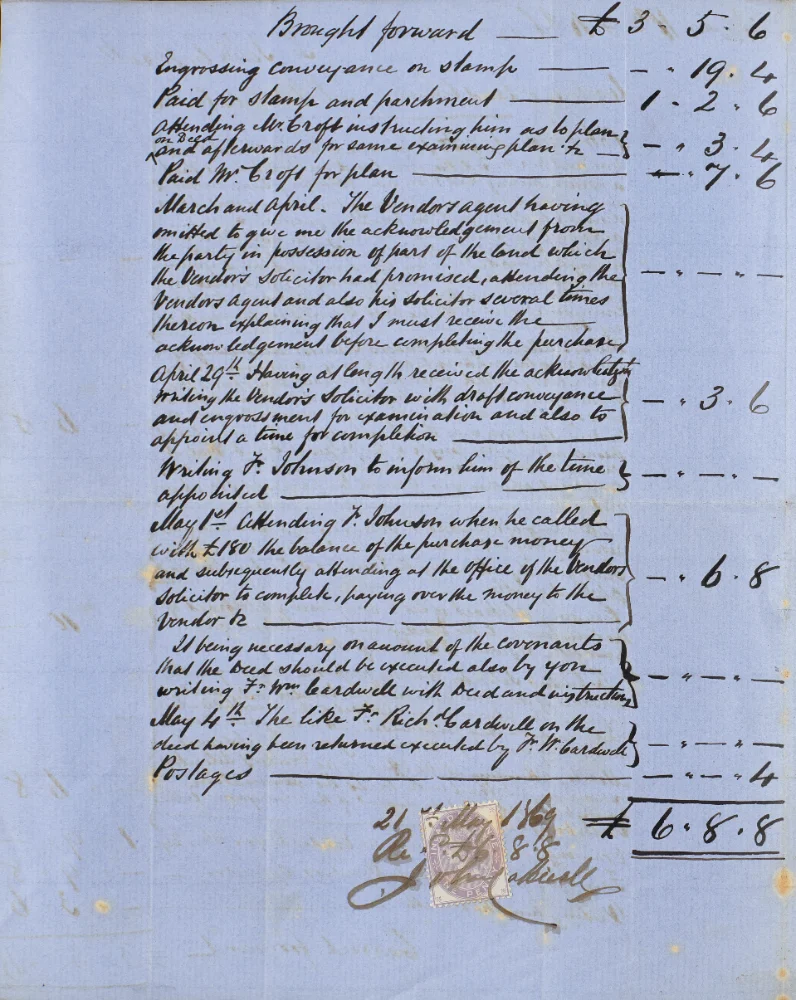 Brought forward — £ 3 - 5 - 6
Engrossing conveyance on stamp — - " 19 . 4
Paid for stamp and parchment — 1 - 2 " 6
Attending Mr Croft instructing him as to plan
on Deed
and afterwards for same examining plan &c — - " 3 . 4
Paid Mr Croft for plan — - " 7 . 6
March and April. The Vendors agent having
omitted to give me the acknowledgement from
the party in possession of part of the land which
the Vendor's Solicitor had promised, attending the — " — " —
Vendors agent and also his Solicitor several times
thereon explaining that I must receive the
acknowledgement before completing the purchase
April 29th Having at length received the
writing the Vendor's Solicitor with draft conveyance — " 3 . 6
and engrossment for examination and also to
appoint a time for completion —
Writing Fr. Johnson to inform him of the time — " — " —
appointed —
May 1st Attending Fr. Johnson when he called
with £180 the balance of the purchase money
and subsequently attending at the office of the Vendors — " 6 . 8
Solicitor to complete, paying over the money to the
Vendor &c —
It being necessary on account of the covenants
that the Deed should be executed also by you — " — " —
writing Fr. Wm Cardwell with Deed and instructions
May 4th The like Fr. Richd Cardwell on the
deed having been returned executed by Fr. W. Cardwell — " — " —
Postages — — " — " 4
£ 6 " 8 . 8
21st May 1869
£6 8 8
John